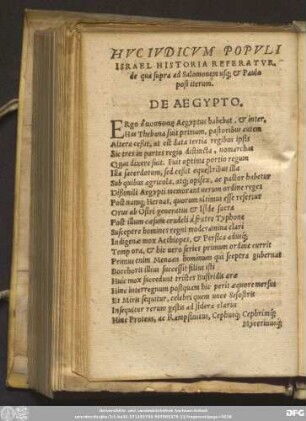 HVC IVDICVM POPVLI
ISRAEL HISTORIA REFERATVR,
de qua supra ad Salomonem usq; & Paulo
post iterum.
DE AEGYPTO.
ERgo Aegyptus habebat, & inter,
Hos Thebana fuit primum, pastoribus autem
Altera cessit, at est data tertia regibus ipsis
Sic tres in partes regio distincta, nomarchas
Quas dixere suit. Fuit optima portio regum
Illa sacerdotum, sed cessit equestribus illa
Sub quibus agricola, atq; opifex, ac pastor habetur
Dissimili Aegypti memorant uerum ordine reges
Post namq; Heroas, quorum ultimus esse refertur
Orus ab Osiri generatus & Iside sacra
Post illum cæsum crudeli a fratre Typhone
Suscepere homines regni moderamina clari
Indigenæ mox Aethiopes, & Persica adusq;
Tempora, & hic uera series primum ordine currit
Primus enim Menaan hominum qui sceptra gubernat
Bocchorit illius successit filius isti
Huic mox succedunt tristes
Hinc interregnum postquam hic perit æquore mersus
Et Miris sequitur, celebri quem uoce Sesostris
Insequitur rerum gestis ad sidera clarus
Hinc Proteus, ac Rampsinitus, Cephusq; Cephrinusq;
Mycerinusq;
Universitäts- und Landesbibliothek Sachsen-Anhalt
DFG